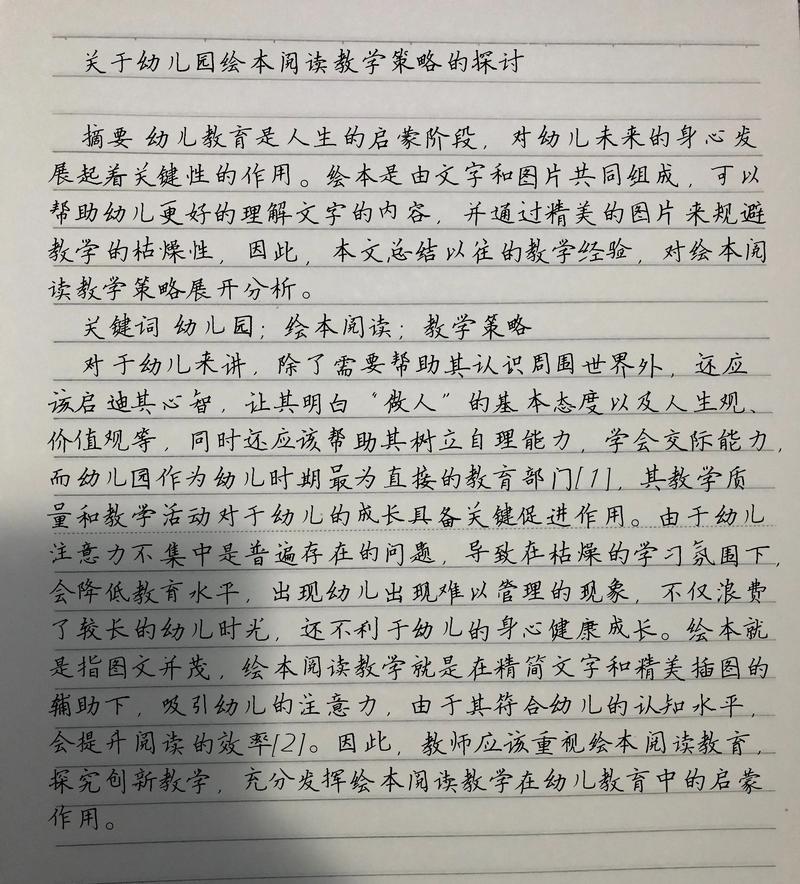 关于幼儿园绘本阅读教学策略的探讨
摘要 幼儿教育是人生的启蒙阶段，对幼儿未来的身心发
展起着关键性的作用。绘本是由文字和图片共同组成，可以
帮助幼儿更好的理解文字的内容，并通过精美的图片来规避
教学的枯燥性，因此，本文总结以往的教学经验，对绘本阅
读教学策略展开分析。
关键词 幼儿园；绘本阅读；教学策略
对于幼儿来讲，除了需要帮助其认识周围世界外，还应
该启迪其心智，让其明白“做人”的基本态度以及人生观、
价值观等，同时还应该帮助其树立自理能力，学会交际能力，
而幼儿园作为幼儿时期最为直接的教育部门[1]，其教学质
量和教学活动对于幼儿的成长具备关键促进作用。由于幼儿
注意力不集中是普遍存在的问题，导致在枯燥的学习氛围下，
会降低教育水平，出现幼儿出现难以管理的现象，不仅浪费
了较长的幼儿时光，还不利于幼儿的身心健康成长。绘本就
是指图文并茂，绘本阅读教学就是在精简文字和精美插图的
辅助下，吸引幼儿的注意力，由于其符合幼儿的认知水平，
会提升阅读的效率[2]。因此，教师应该重视绘本阅读教育，
探究创新教学，充分发挥绘本阅读教学在幼儿教育中的启蒙
作用。